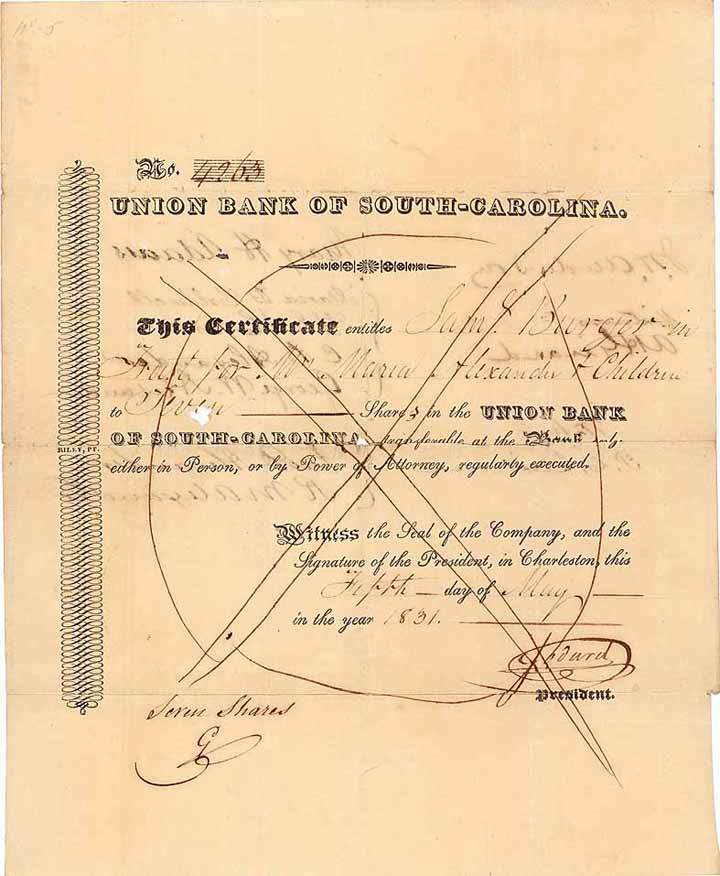 No. 4263
UNION BANK OF SOUTH-CAROLINA.
This Certificate entitles Saml. Burger in
Trust for Mrs Maria Alexander & Children
to Seven Shares in the UNION BANK
OF SOUTH-CAROLINA, transferable at the Bank only
RILEY, PT.
either in Person, or by Power of Attorney, regularly executed.
Witness the Seal of the Company, and the
Signature of the President, in Charleston, this
Fifth day of May
in the year 1831.
President.
Seven Shares